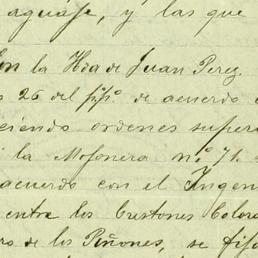 aguaje, y las que
En la Hda de Juan Perez.
26 del de acuerdo
ciendo ordenes super
la Mojonera n.º 71.
acuerdo con el Ingen
entre los Crestones Colora
de los Piñones, se